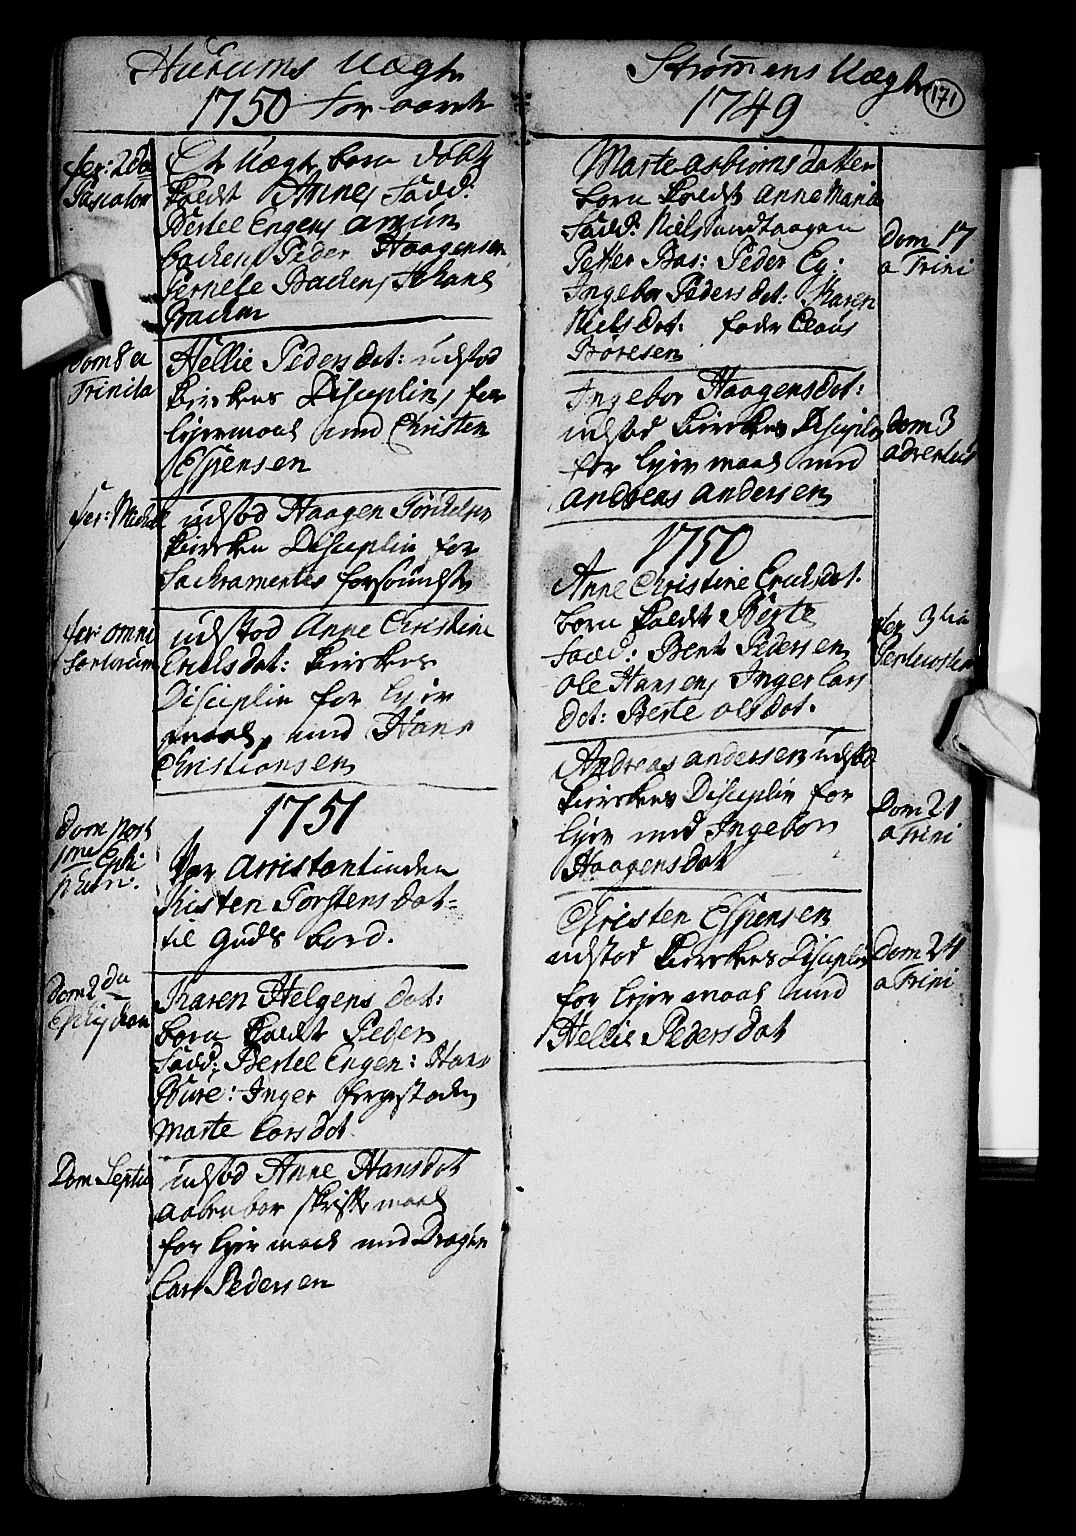 Hurums Uægte
1750 for aaret
fer: 2da
Pascatos
Et Uægte barn døbt
kaldt Amnes fadd:
Bertel Engen, amun
backen, Peder Haagensen
Pernele Backen, Johans
Backen
Dom 8 a
Trinita
Hellie Pedersdat: udstod
kirckens Disciplin, for
leyermaal med Christen
Espensen
fer: Michal
udstod Haagen
kircken Disciplin for
Sackramentes forsømmelse
fer: omni
Sanctorum
udstod Anne Christine
Ericksdat: kirckens
Disciplin for leyer
maal, med Hans
Christiansen
1751
Dom post
1me Epi:
phan:
Var Arrestantinden
Kisten Torstensdat=
til Guds bord.
Dom 2 da
Epiphan
Karen Helgensdat:
barn kaldt Peder
fadd: Bertel Engen: Hans
Bure: Inger
Marte Larsdat
Dom Septu
udstod Anne Hansdat
aabenbar skriftemaal
for leyermaal med Dragon
Lars Pedersen
Strømmens Uægte
171
1749
Marte Asbiørnsdatter
barn kaldt Anne Maria
fadd: Niels Sundhaagen
Petter Bas: Peder Eg:
Ingebor Pedersdat: Karen
Nielsdat: fader Claus
Børesen
Dom 17
a Trini
Ingebor Haagensdat:
udstod kirckens Disciplin
for leyermaal med
Andreas Andersen
Dom 3
adventus
1750
Anne Christine Ericksdat.
barn kaldt Berte
fadd: Bent Pedersen
Ole Hansen, Inger Lars
dat: Berte Olsdat.
fer 3tia
Pentecoste
Andreas Andersen udstod
kirckens Disciplin for
leyer med Ingebor
Haagensdat
Dom 21
a Trini
Christen Espensen
udstod kirckens Disciplin
for leyermaal med
Hellie Pedersdat
Dom 24
a Trini